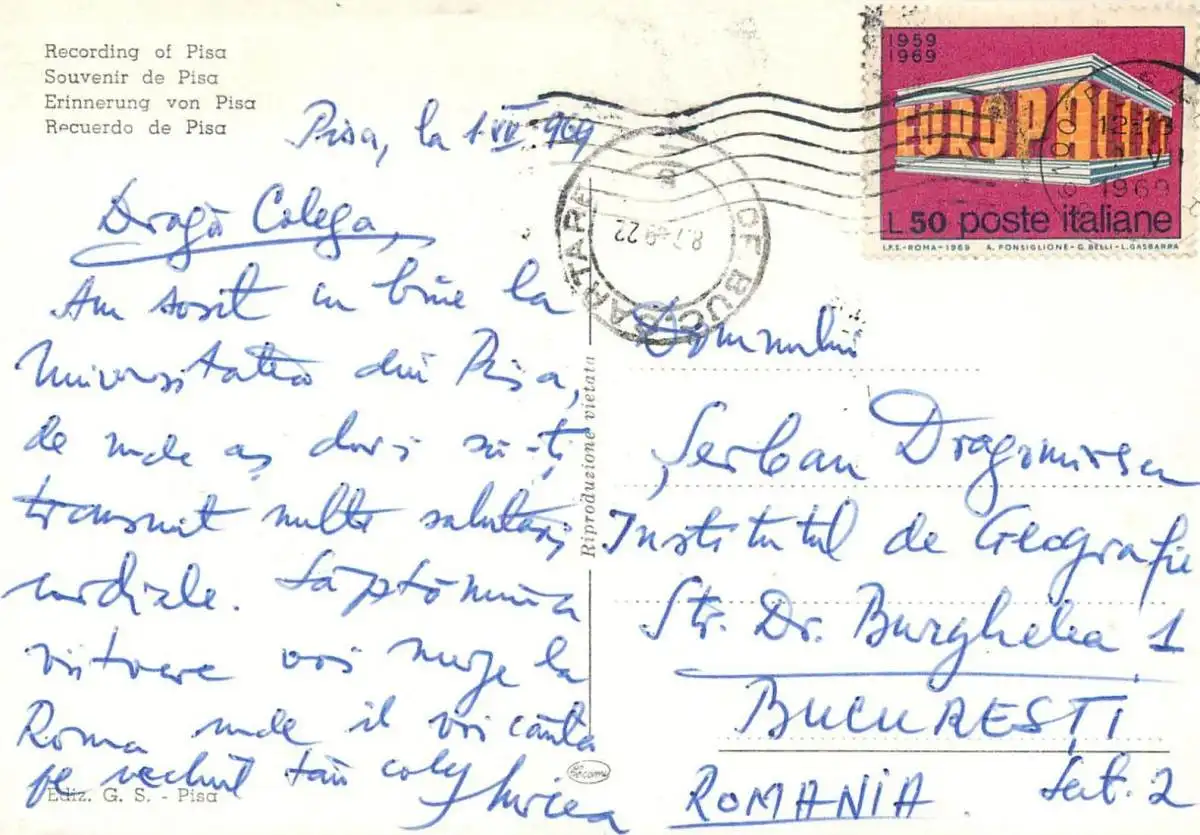 Recording of Pisa
Souvenir de Pisa
Erinnerung von Pisa
Recuerdo de Pisa
Pisa, la 1 VII 969
Dragă Colega,
Am sosit cu bine la
Universitatea din Pisa,
de unde aș dori să-ți
transmit multe salutări
cordiale. Săptămîna
viitoare voi merge la
Roma unde îl voi căuta
pe vechiul tău coleg
Mircea
Ediz. G. S. - Pisa
Riproduzione vietata
1959
1969
EUROPA CEPT
L.50 poste italiane
I.P.S.-ROMA-1969 A. PONSIGLIONE-G. BELLI-L. GASBARRA
12-13
1969
OF. BUC.
CARTARE
8.7.69.22
Domnului
Șerban Dragomirescu
Institutul de Geografie
Str. Dr. Burghelea 1
BUCUREȘTI
Sect. 2
ROMANIA